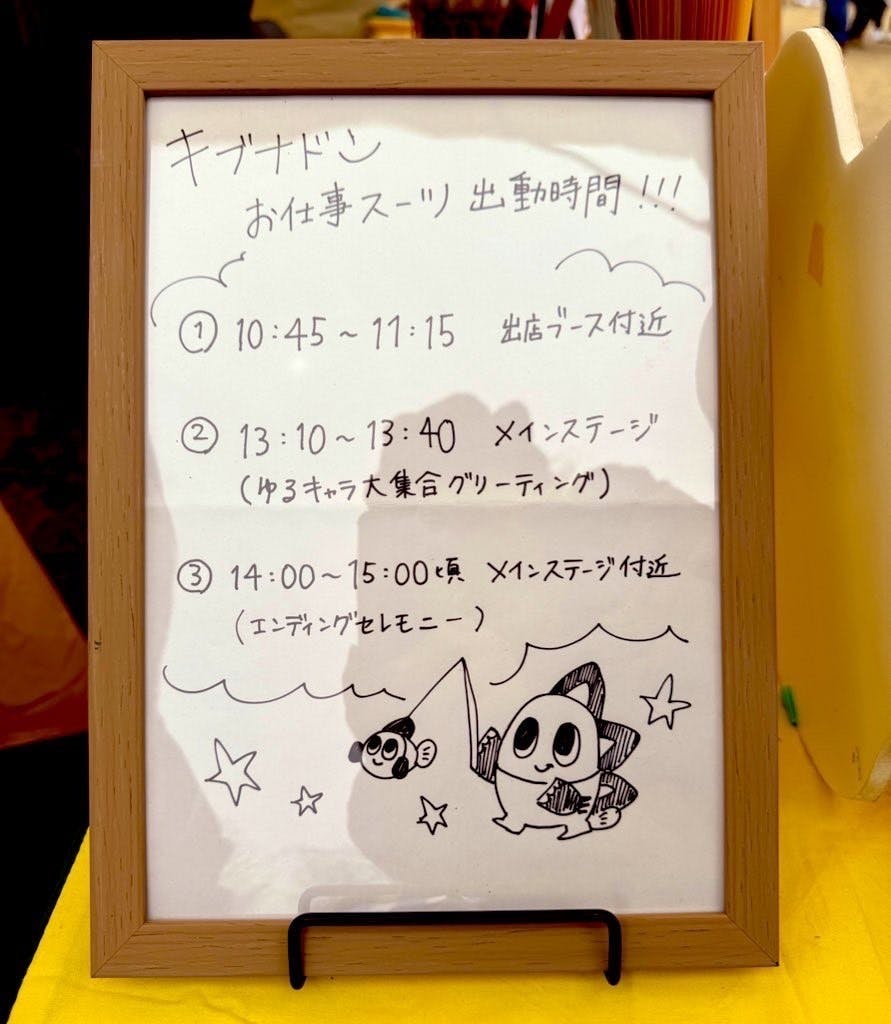 キブナドン
お仕事スーツ 出動時間!!!
① 10:45～11:15 出店ブース付近
② 13:10～13:40 メインステージ
(ゆるキャラ大集合グリーティング)
③ 14:00～15:00頃 メインステージ付近
(エンディングセレモニー)